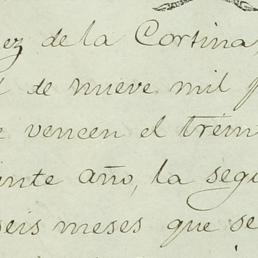 ez de la Cortina,
de nueve mil p
vencen el trein
inte año, la segu
seis meses que se